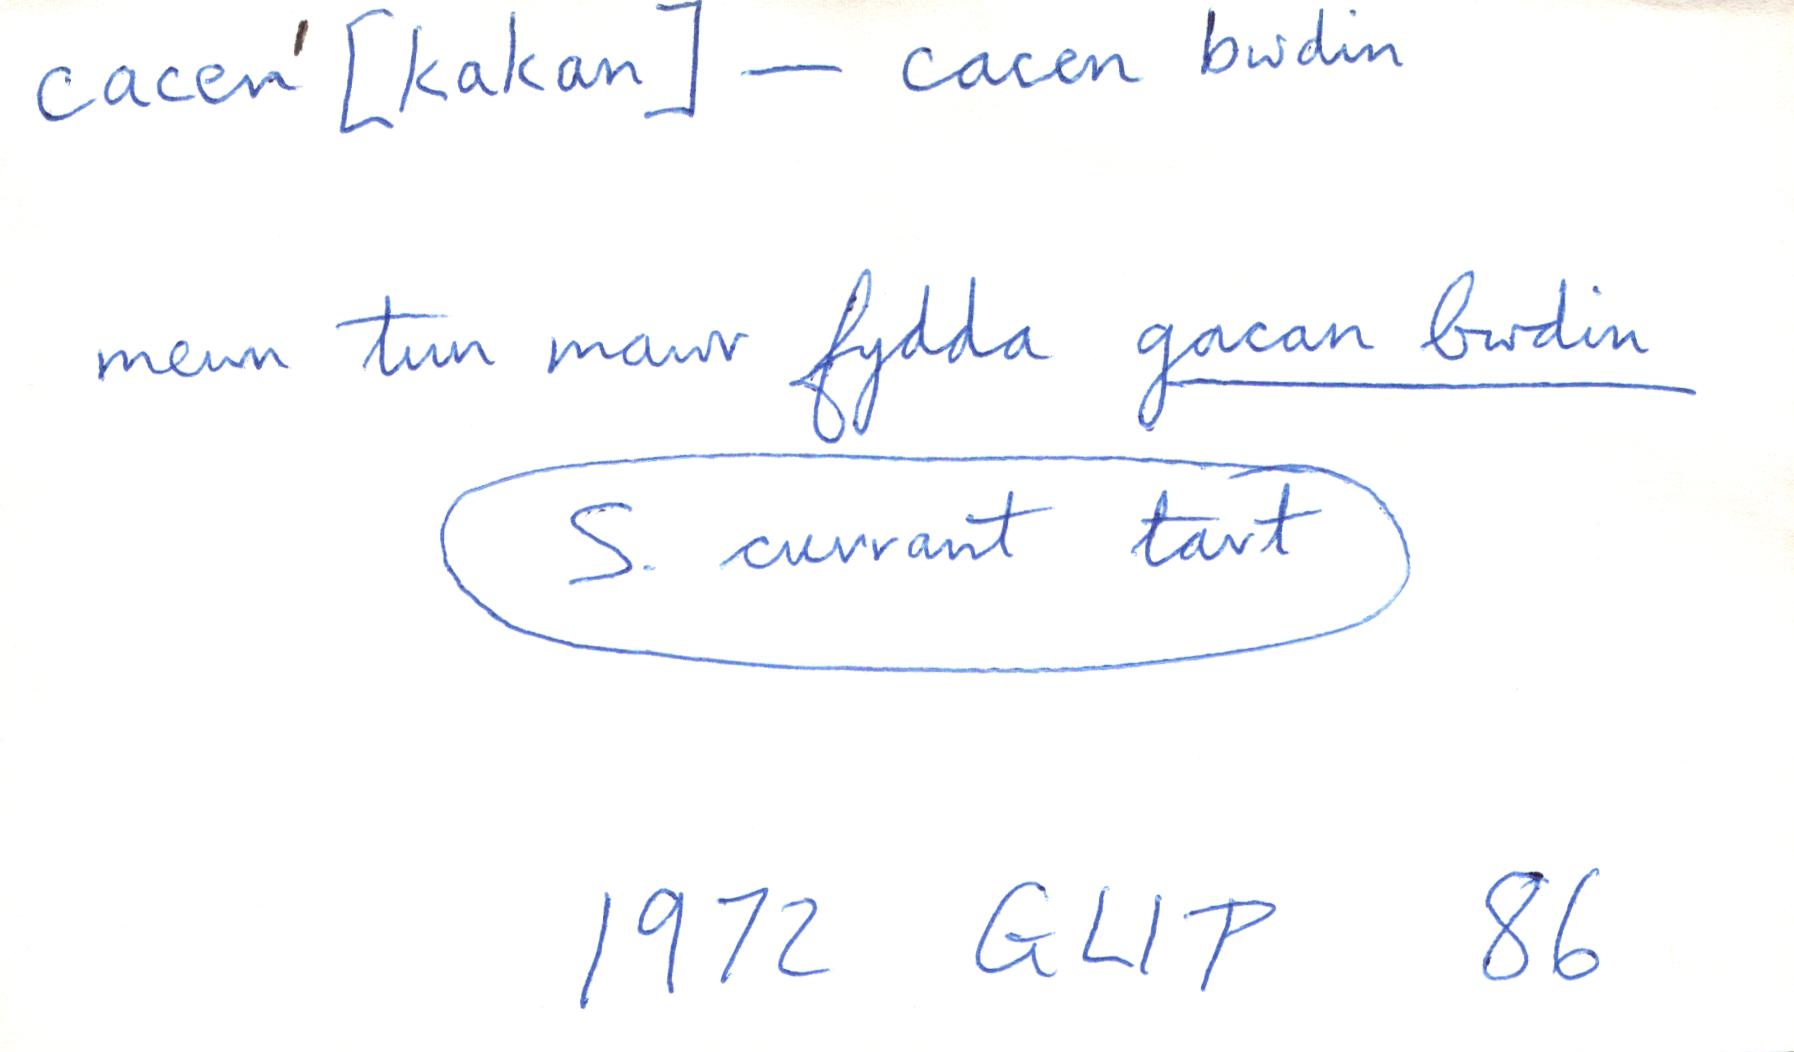 cacen' [kakan] — cacen bwdin
mewn tun mawr fydda gacan bwdin
S. currant tart
1972 GLIP 86